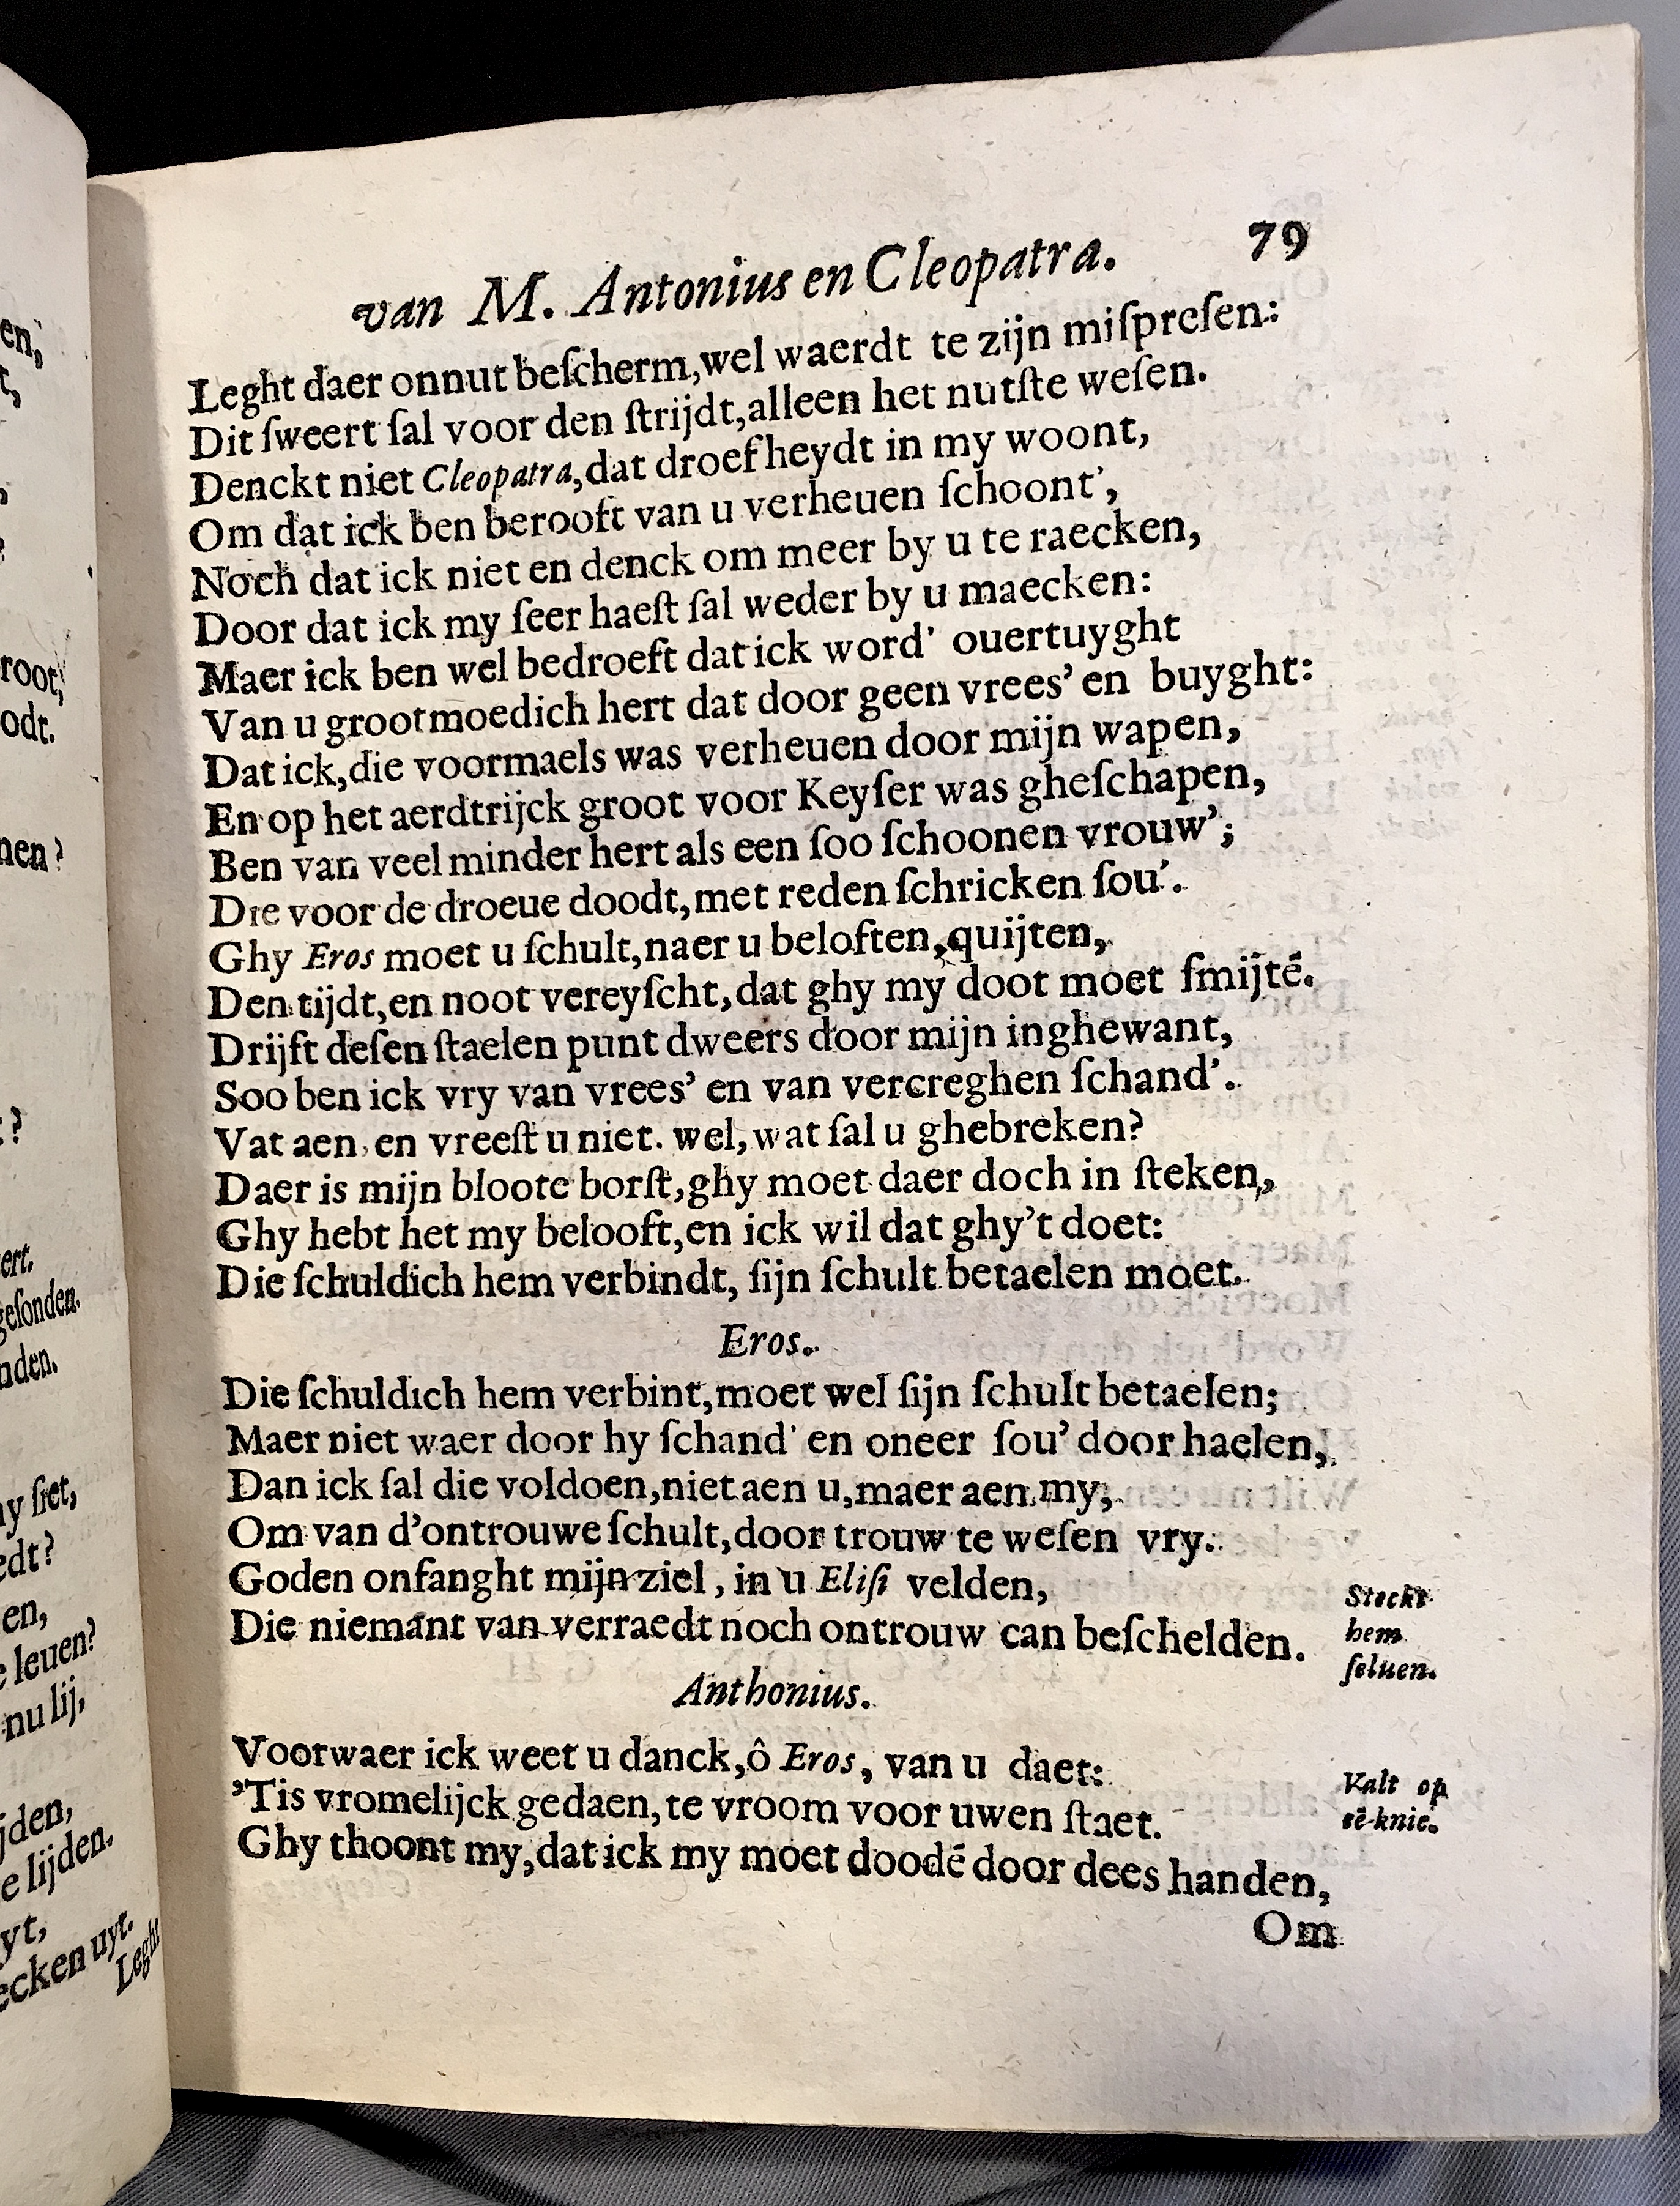 en,
t,
root,
odt.
nen?
t?
ert.
gesonden.
nden.
ny siet,
edt?
en,
e leuen?
nu lij,
jden,
e lijden.
yt,
ecken uyt.
Leght
van M. Antonius en Cleopatra. 79
Leght daer onnut beſcherm,wel waerdt te zijn miſpreſen:
Dit ſweert ſal voor den ſtrijdt,alleen het nutſte weſen.
Denckt niet Cleopatra,dat droefheydt in my woont,
Om dat ick ben berooft van u verheuen ſchoont',
Noch dat ick niet en denck om meer by u te raecken,
Door dat ick my ſeer haeſt ſal weder by u maecken:
Maer ick ben wel bedroeft dat ick word' ouertuyght
Van u grootmoedich hert dat door geen vrees' en buyght:
Dat ick,die voormaels was verheuen door mijn wapen,
En op het aerdtrijck groot voor Keyſer was gheſchapen,
Ben van veel minder hert als een ſoo ſchoonen vrouw';
Die voor de droeue doodt,met reden ſchricken ſou'.
Ghy Eros moet u ſchult,naer u beloften,quijten,
Den tijdt,en noot vereyſcht,dat ghy my doot moet ſmijtē.
Drijft deſen ſtaelen punt dweers door mijn inghewant,
Soo ben ick vry van vrees' en van vercreghen ſchand'.
Vat aen, en vreeſt u niet. wel,wat ſal u ghebreken?
Daer is mijn bloote borſt,ghy moet daer doch in ſteken,
Ghy hebt het my belooft,en ick wil dat ghy't doet:
Die ſchuldich hem verbindt, ſijn ſchult betaelen moet.
Eros.
Die ſchuldich hem verbint,moet wel ſijn ſchult betaelen;
Maer niet waer door hy ſchand' en oneer ſou' door haelen,
Dan ick ſal die voldoen,niet aen u,maer aen my;
Om van d'ontrouwe ſchult,door trouw te weſen vry.
Goden onfanght mijn ziel, in u Eliſi velden,
Die niemant van verraedt noch ontrouw can beſchelden.
Steckt
hem
ſeluen.
Anthonius.
Voorwaer ick weet u danck,ô Eros, van u daet:
'Tis vromelijck gedaen,te vroom voor uwen ſtaet.
Valt op
sē knie.
Ghy thoont my,dat ick my moet doodē door dees handen,
Om